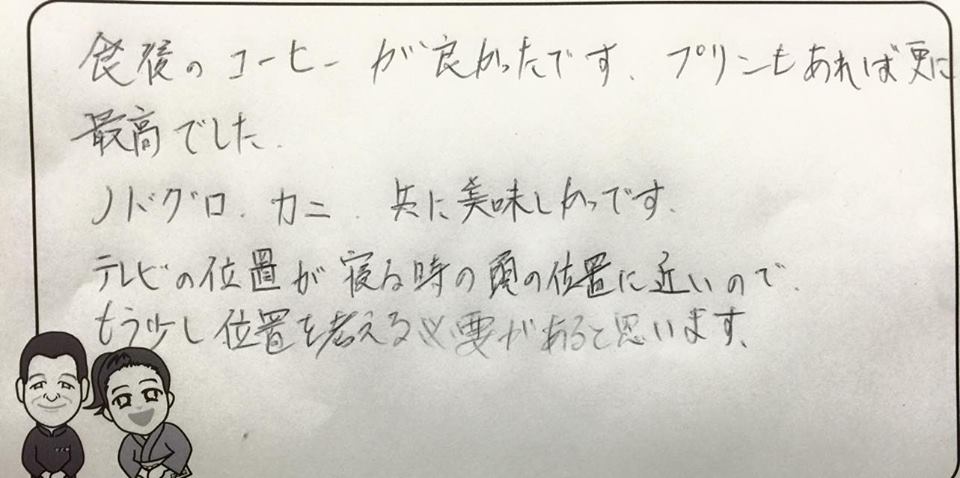 食後のコーヒーが良かったです、プリンもあれば更に
最高でした.
ノドグロ、カニ、共に美味しかっです。
テレビの位置が寝る時の頭の位置に近いので、
もう少し位置を考える必要があると思います。